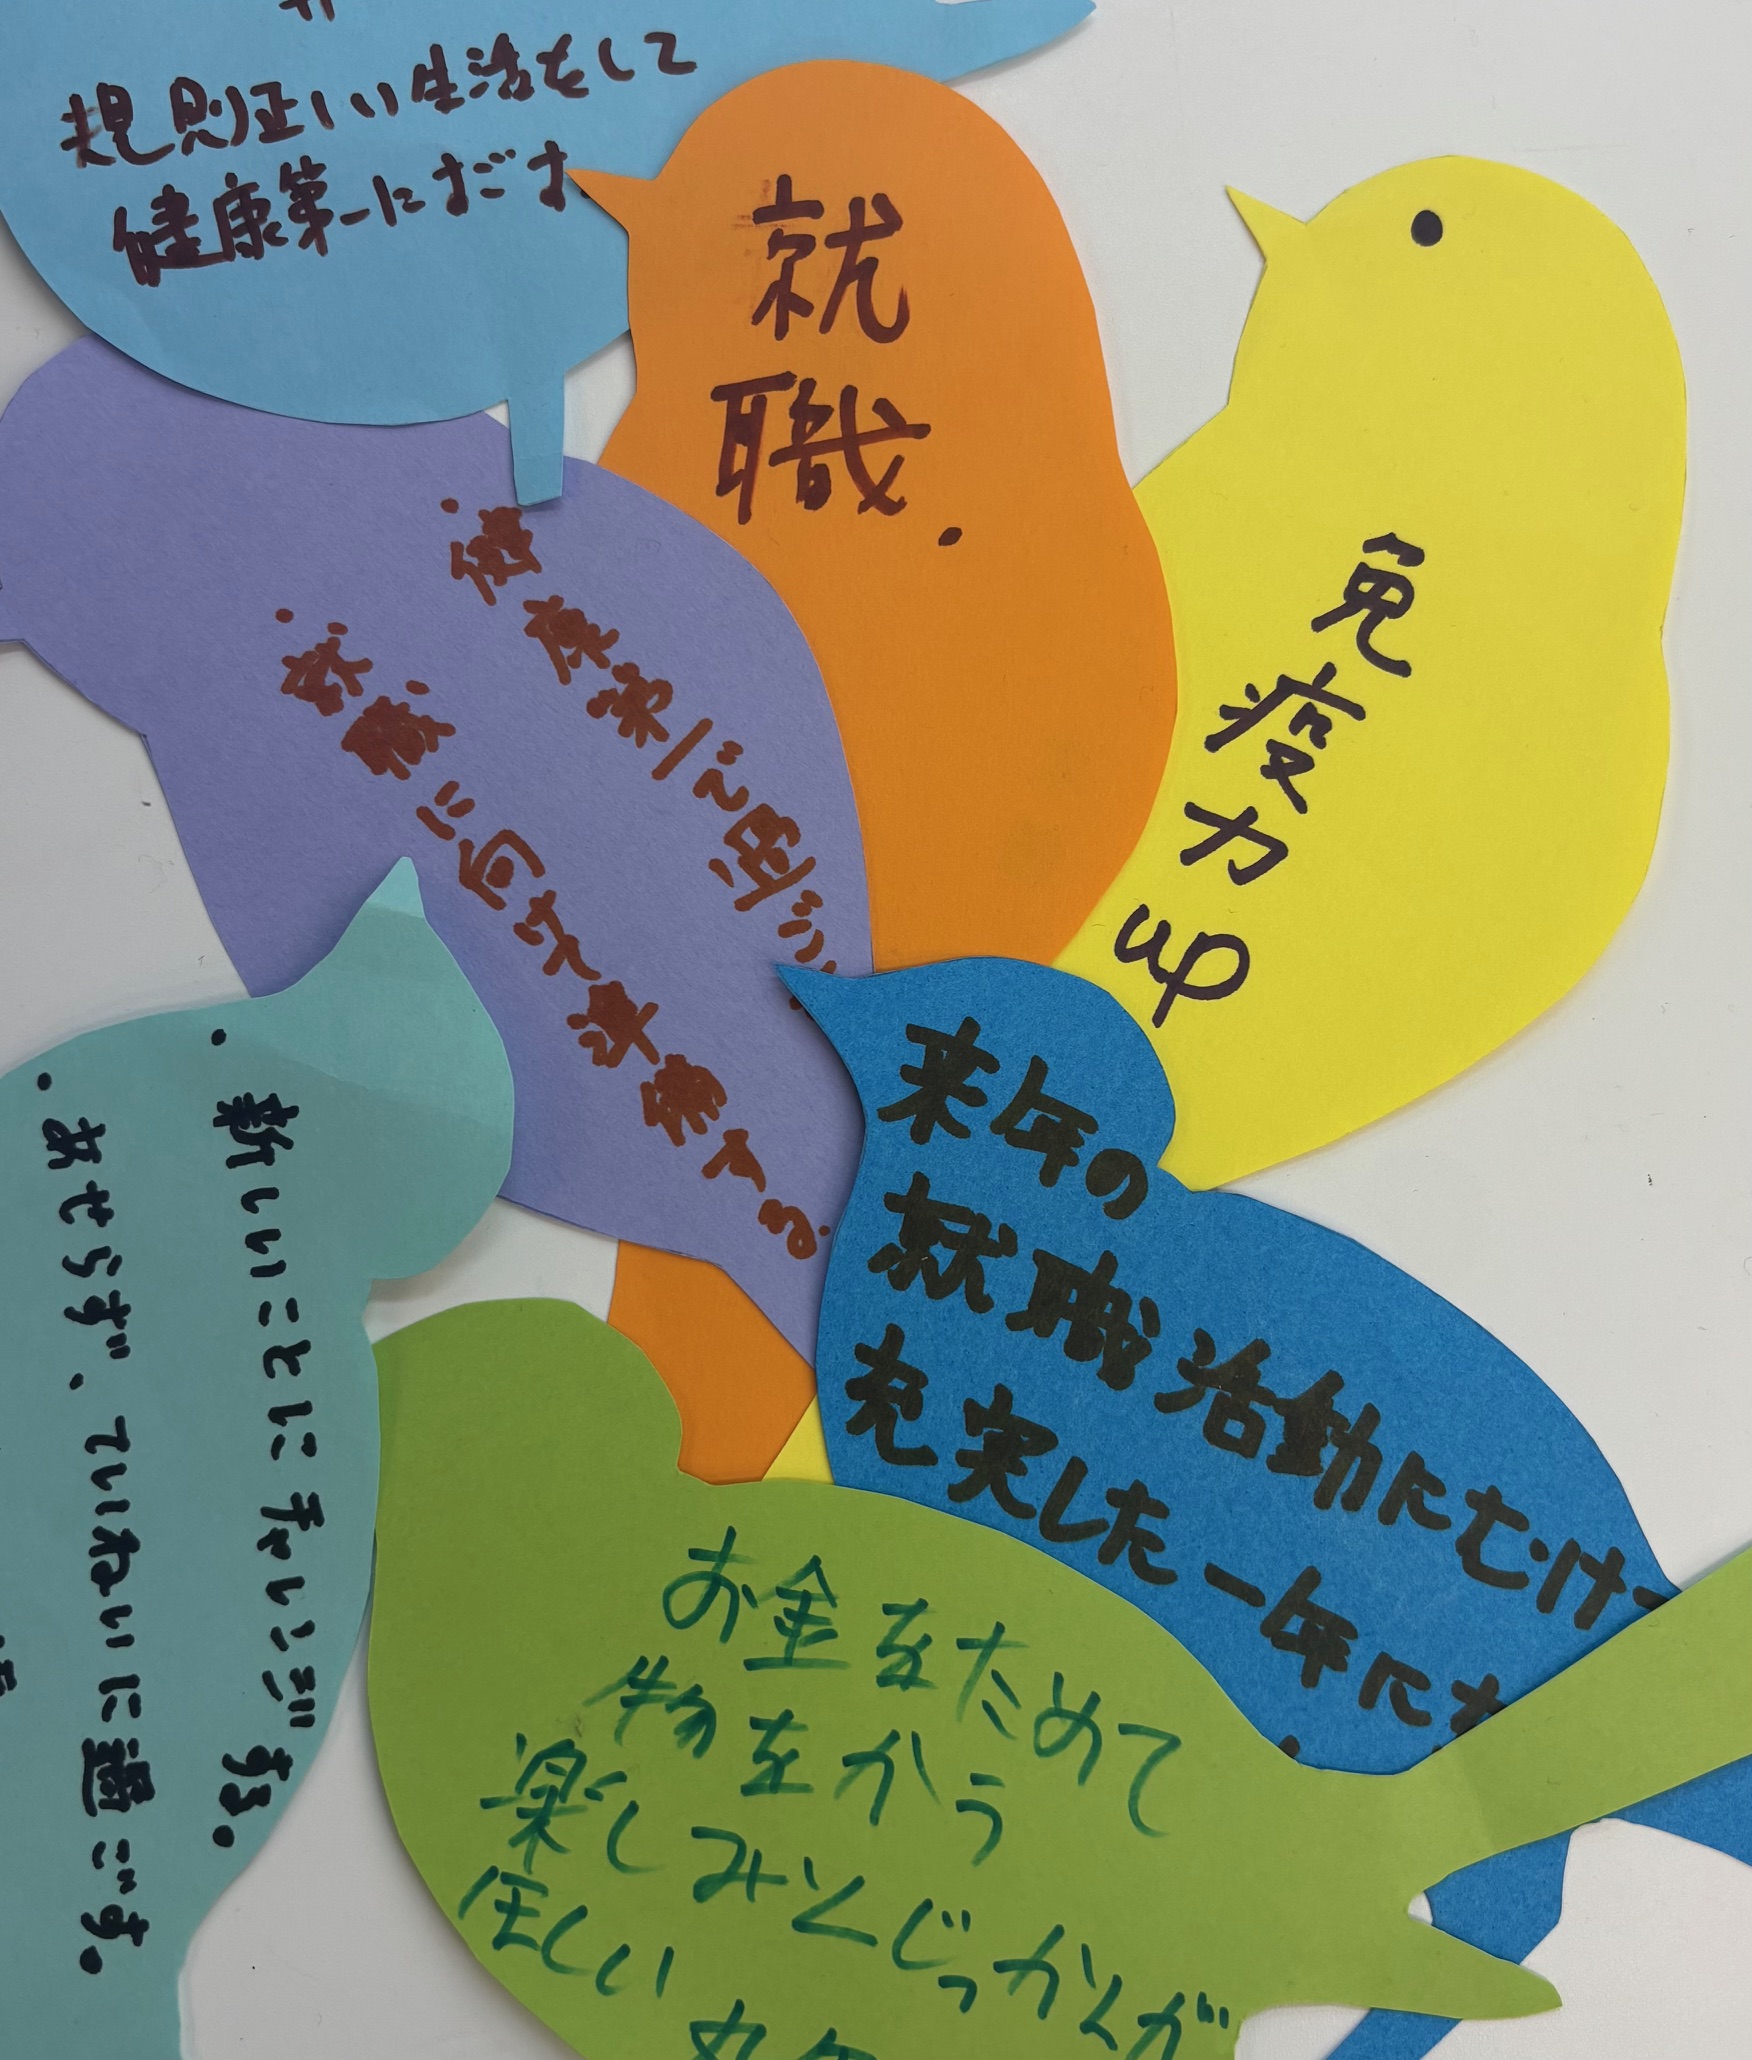 規則正しい生活をして
健康第一にすごす
就
職.
免疫力up
・健康第一で過ご
・就職に向けて準備する。
来年の
就職活動にむけ
充実した一年に
・新しいことにチャレンジする。
・あせらず、ていねいに過ごす。
お金をためて
物をかう
楽しみとじっかんが
ほしい